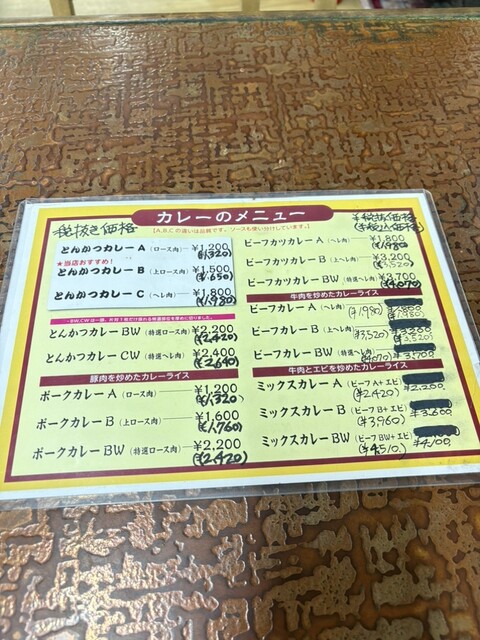 カレーのメニュー
【A,B,Cの違いは豆質です。ソースも使い分けしています。】
税抜き価格
とんかつカレー A (ロース肉) ¥1,200
(¥1,320)
★当店おすすめ!
とんかつカレー B (上ロース肉) ¥1,500
(¥1,650)
とんかつカレー C (ヘレ肉) ¥1,800
(¥1,980)
とんかつカレー BW (特選ロース肉) ¥2,200
(¥2,420)
とんかつカレー CW (特選ヘレ肉) ¥2,400
(¥2,640)
豚肉を炒めたカレーライス
ポークカレー A (ロース肉) ¥1,200
(¥1,320)
ポークカレー B (上ロース肉) ¥1,600
(¥1,760)
ポークカレー BW (特選ロース肉) ¥2,200
(¥2,420)
¥税抜価格
(¥税込価格)
ビーフカツカレー A (ヘレ肉) ¥1,800
(¥1,980)
ビーフカツカレー B (上ヘレ肉) ¥3,200
(¥3,520)
ビーフカツカレー BW (特選ヘレ肉) ¥3,700
(¥4,070)
牛肉を炒めたカレーライス
ビーフカレー A (ヘレ肉)
(¥1,980)
ビーフカレー B (上ヘレ肉) ¥3,200
(¥3,520)
ビーフカレー BW (特選ヘレ肉)
(¥4,070) ¥3,700
牛肉とエビを炒めたカレーライス
ミックスカレー A (ビーフA+エビ)
(¥2,420) ¥2,200
ミックスカレー B (ビーフB+エビ)
(¥3,960) ¥3,600
ミックスカレー BW (ビーフBW+エビ)
(¥4,510) ¥4,100